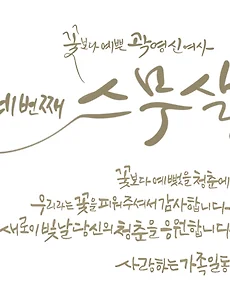 꽃보다 예쁜 곽영신여사
네번째 스무살
꽃보다 예뻤을 청춘에
우리라는 꽃을 피워주셔서 감사합니다
새로이 빛날 당신의 청춘을 응원합니다
사랑하는 가족일동